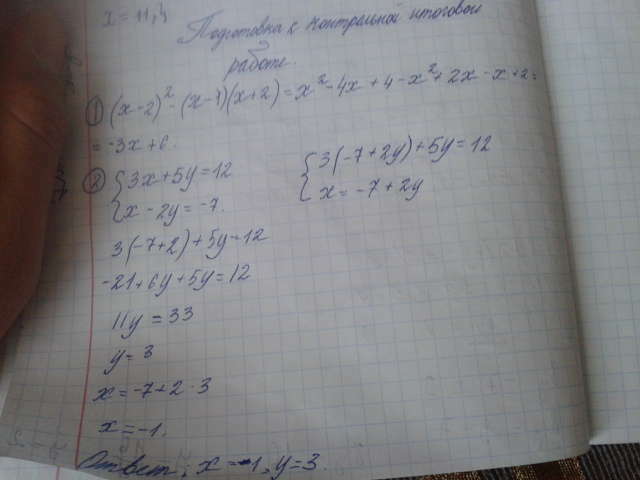 x = 11,4
Подготовка к контрольной итоговой
работе.
① (x-2)² - (x-1)(x+2) = x² - 4x + 4 - x² + 2x - x + 2 =
= -3x + 6.
② { 3x + 5y = 12
{ x - 2y = -7
{ 3(-7 + 2y) + 5y = 12
{ x = -7 + 2y
3(-7 + 2) + 5y = 12
-21 + 6y + 5y = 12
11y = 33
y = 3
x = -7 + 2 · 3
x = -1.
Ответ: x = -1, y = 3.